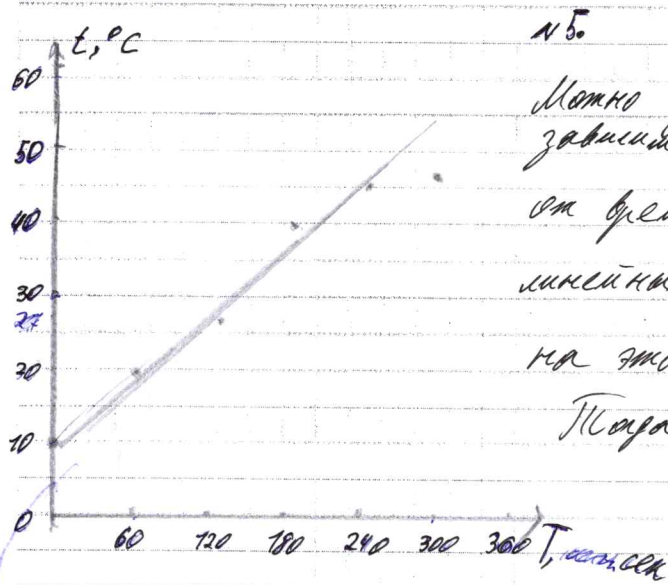 t, °C
60
50
40
30
27
20
10
0
60 120 180 240 300 360 T, сек
№5.
Можно
зависим
от врем
линейны
на это
Тогда